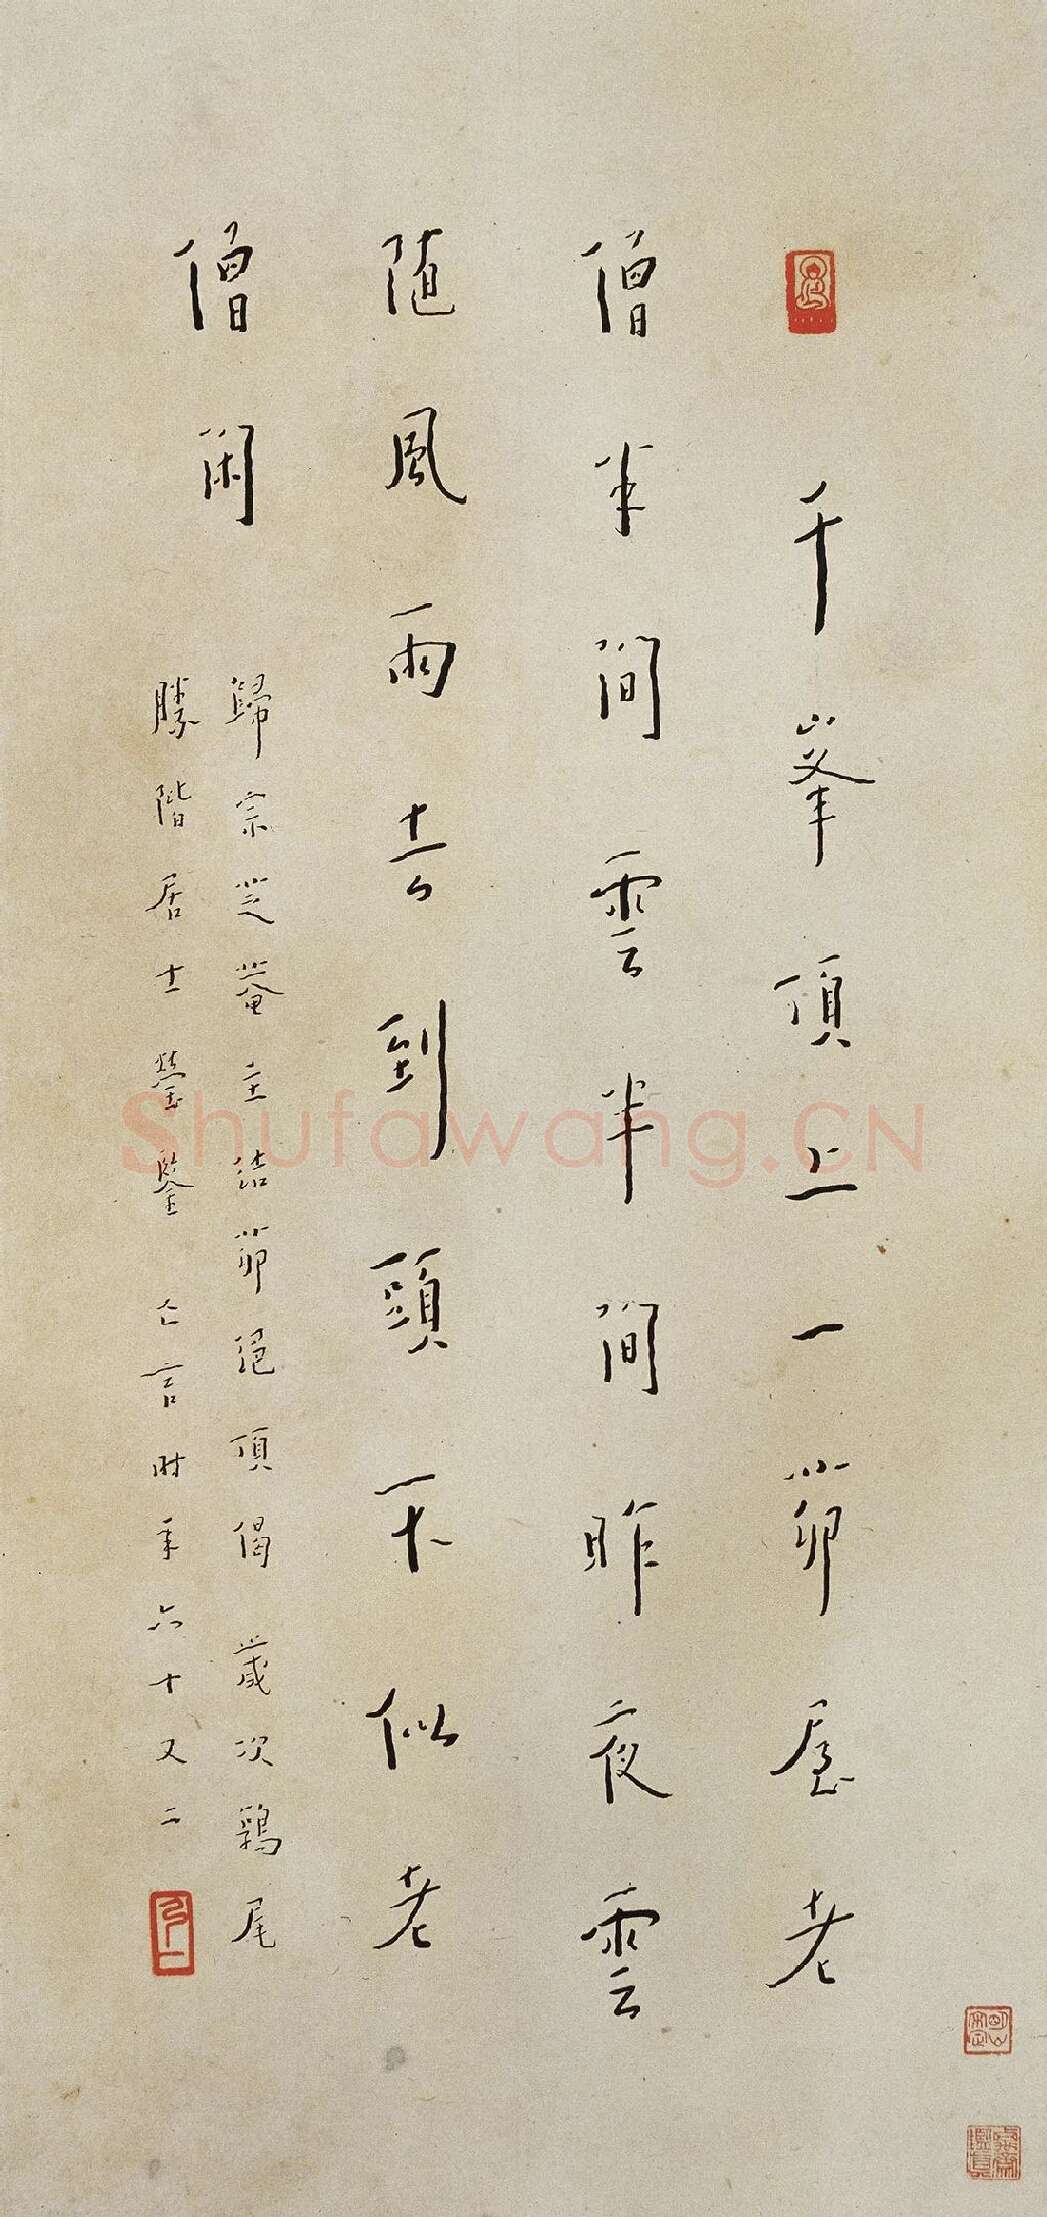 千峯頂上一茆屋老
僧半間雲半間昨夜雲
随風雨去到頭不似老
僧閑
歸宗芝菴主結茆絕頂偈 歲次鶉尾
勝階居士瑩鑒 亡言時年六十又二
弘一
Shufawang.CN